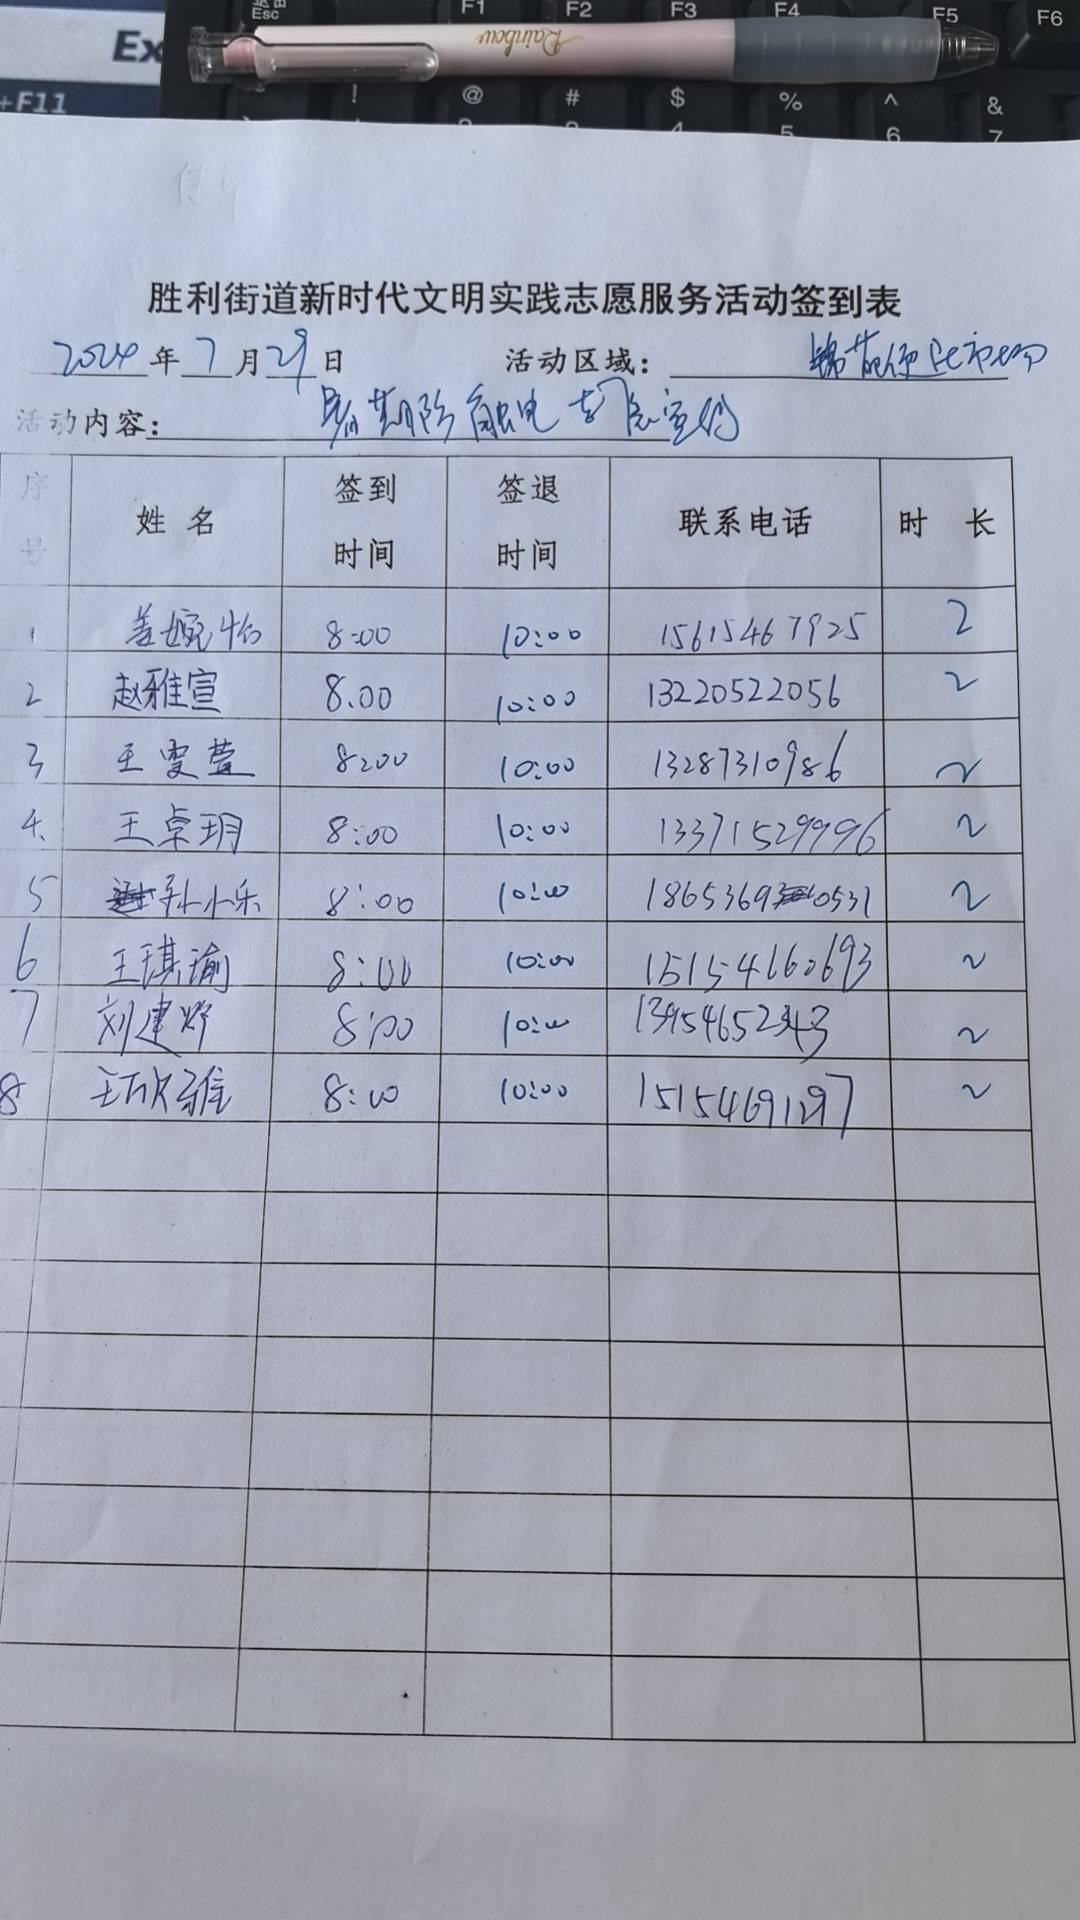 Esc F1 F2 F3 F4 F5 F6
Rainbow
Ex
+F11
! @ # $ % ^ &
胜利街道新时代文明实践志愿服务活动签到表
2024年7月29日 活动区域： 锦苑便民市场
活动内容： 暑期防触电志愿宣传
序号 姓名 签到时间 签退时间 联系电话 时长
1 8:00 10:00 15615467925 2
2 赵雅宣 8:00 10:00 13220522056 2
3 王雯萱 8:00 10:00 13287310986 2
4 王卓玥 8:00 10:00 13371529996 2
5 孙小乐 8:00 10:00 18653690531 2
6 王琪瑜 8:00 10:00 15154660693 2
7 刘建烨 8:00 10:00 2
8 王欣雅 8:00 10:00 15154691297 2